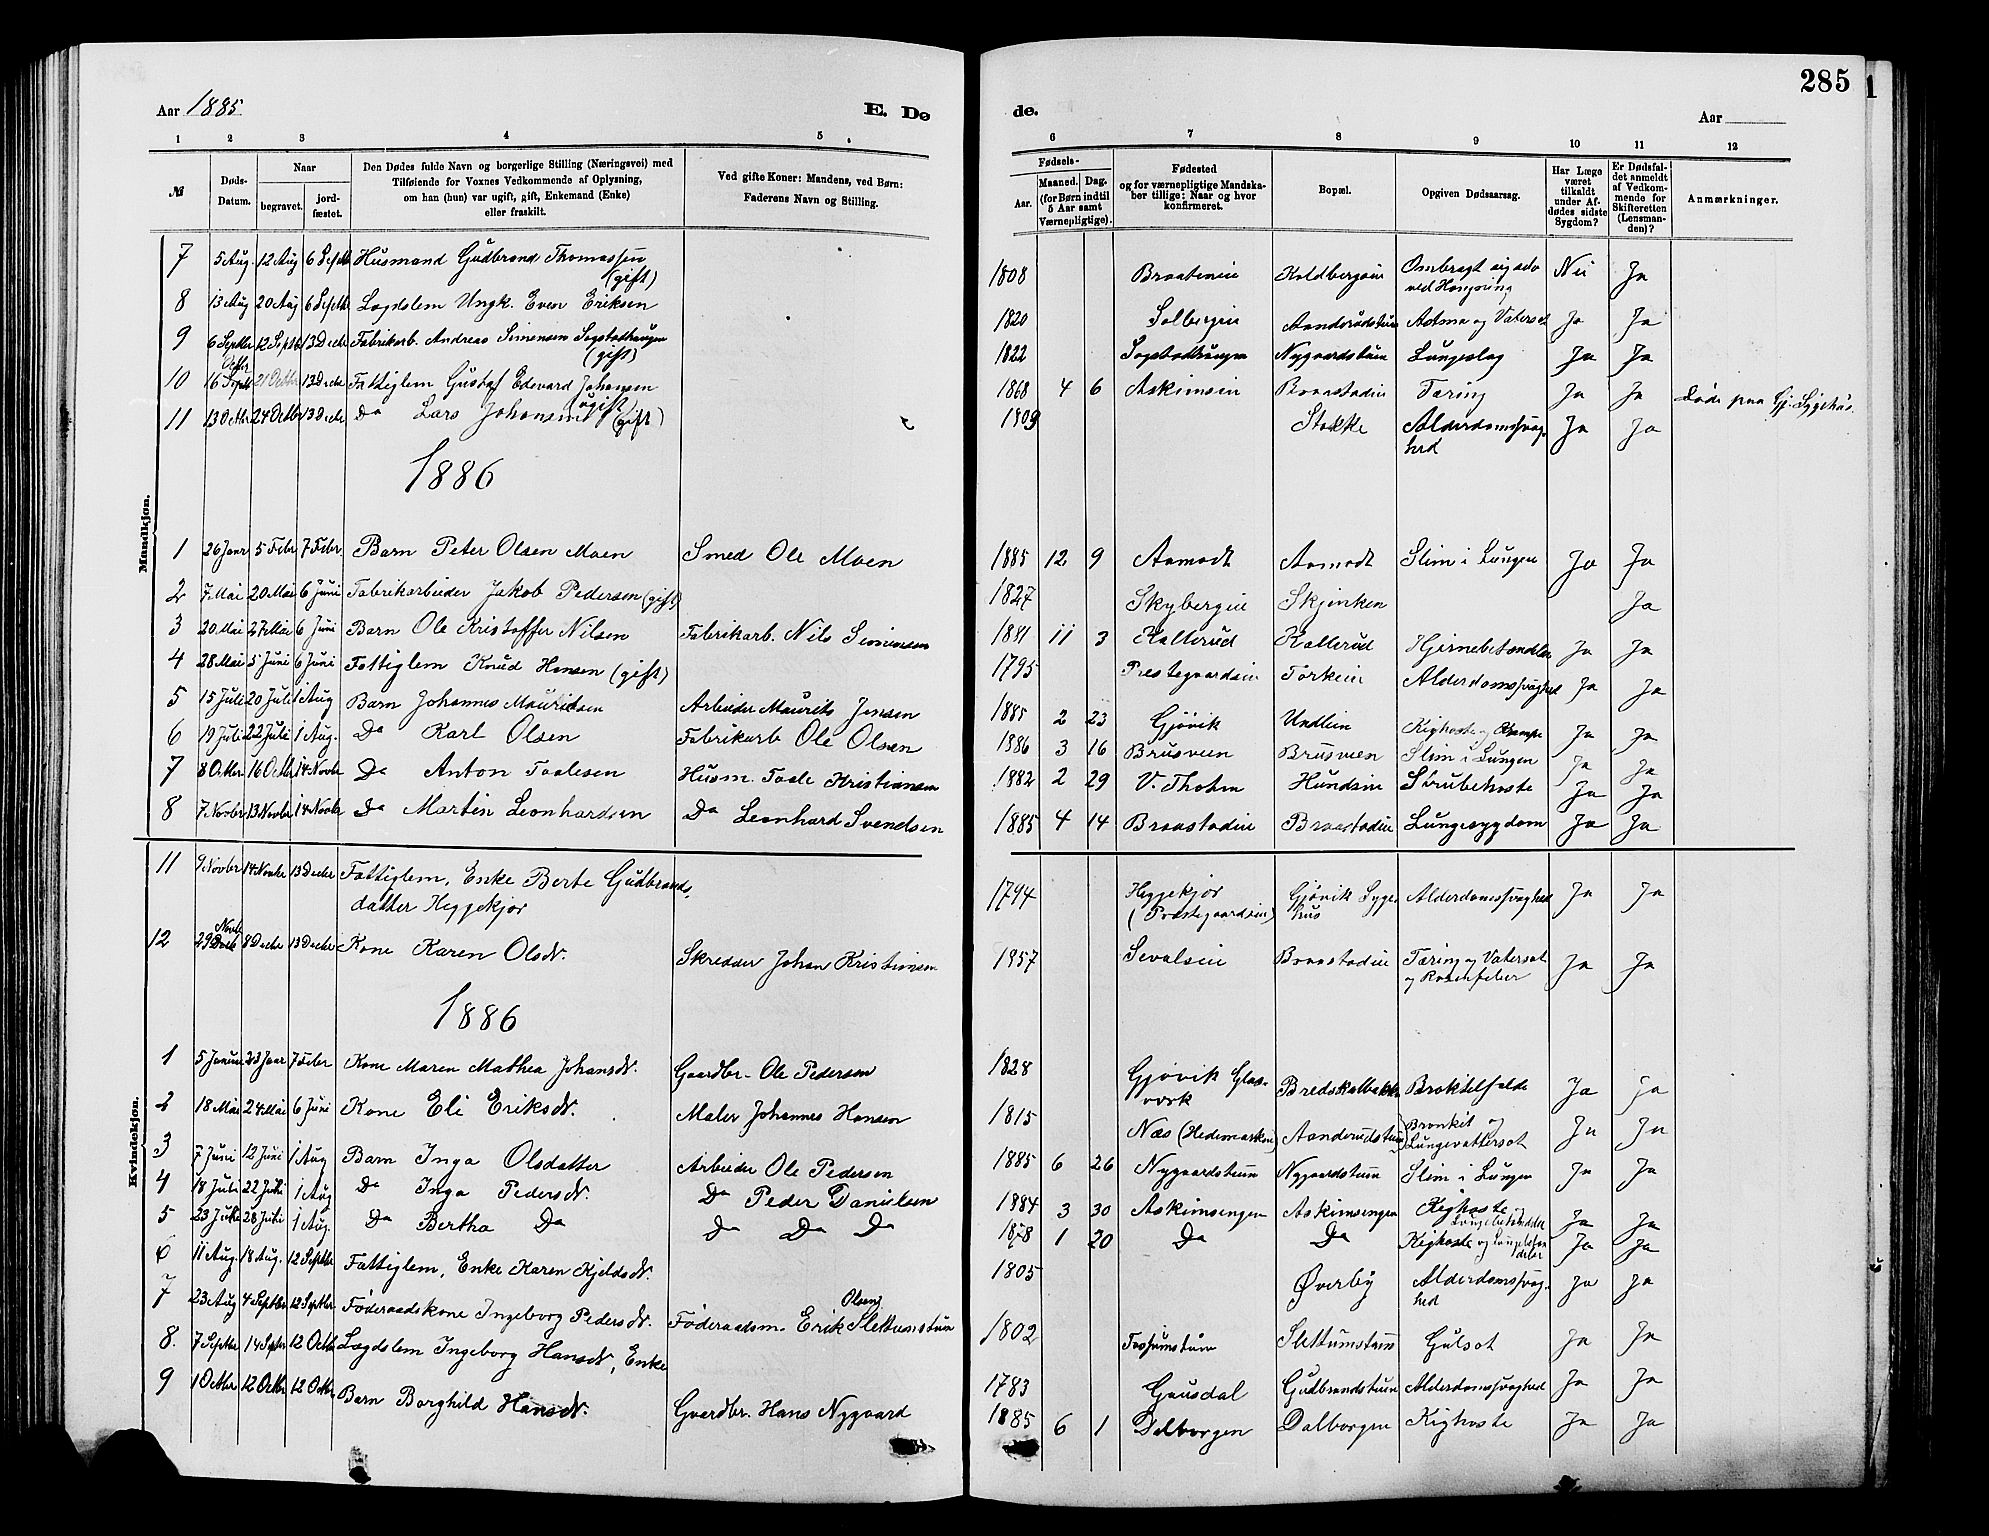 285
Aar 1885
E. Dø
de.
Aar
1 2 3 4 5 6 7 8 9 10 11 12
№
Døds-
Datum.
Naar
begravet.
jord-
fæstet.
Den Dødes fulde Navn og borgerlige Stilling (Næringsvei) med
Tilføiende for Voxnes Vedkommende af Oplysning,
om han (hun) var ugift, gift, Enkemand (Enke)
eller fraskilt.
Ved gifte Koner: Mandens, ved Børn:
Faderens Navn og Stilling.
Fødsels-
Aar.
Maaned. Dag.
(for Børn indtil
5 Aar samt
Værnepligtige).
Fødested
og for værnepligtige Mandska-
ber tillige: Naar og hvor
konfirmeret.
Bopæl.
Opgiven Dødsaarsag.
Har Læge
været
tilkaldt
under Af-
dødes sidste
Sygdom?
Er Dødsfal-
det anmeldt
af Vedkom-
mende for
Skifteretten
(Lensman-
den)?
Anmærkninger.
Mandkjøn.
7 5 Aug. 12 Aug 6 Septb Husmand Gudbrand Thomassen
(gift)
1808 Braateneie Koldbergseie Ombragt sig selv Nei Ja
ved Hængning
8 13 Aug 20 Aug 6 Septb Lægdslem Ungk. Even Eriksen
1820 Solbergeie Aanderudstuen Astma og Vatersot Ja Ja
9 6 Septbr 12 Septb 13 Decbr Fabrikarb. Andreas Simensen Sogstadhaugen
(gift)
1822 Sogstadhaugen Nygaardstuen Lungeslag Ja Ja
Octbr
10 16 Septb 21 Octbr 13 Decbr Fattiglem Gustaf Edevard Johansen
(ugift)
1868 4 6 Askimseie Braastadeie Tæring Ja Ja Døde paa Gj. Sygehus.
11 13 Octbr 24 Octbr 13 Decbr Do Lars Johansen (gift)
1809 Stokke Alderdomssvag- Ja Ja
hed
1886
1 26 Janr 5 Febr 7 Febr Barn Peter Olsen Moen Smed Ole Moen 1885 12 9 Aamodt Aamodt Slim i Lungen Ja Ja
2 7 Mai 20 Mai 6 Juni Fabrikarbeider Jakob Pedersen (gift) 1827 Skybergeie Skjenken Ja
3 20 Mai 27 Mai 6 Juni Barn Ole Kristoffer Nilsen Fabrikarb. Nils Simensen 1881 11 3 Kallerud Kallerud Hjernebetændelse Ja Ja
4 28 Mai 5 Juni 6 Juni Fattiglem Knud Hansen (gift) 1795 Prestegaardseie Torkeie Alderdomssvaghed Ja Ja
5 15 Juli 20 Juli 1 Aug Barn Johannes Mauritsen Arbeider Maurits Jensen 1885 2 23 Gjøvik Undlien Kighoste og Krampe Ja Ja
6 19 Juli 22 Juli 1 Aug. Do Karl Olsen Fabrikarb Ole Olsen 1886 3 16 Brusveen Brusveen Slim i Lungen Ja Ja
7 8 Octbr 16 Octbr 14 Novbr Do Anton Taalesen Husm. Taale Kristiansen 1882 2 29 V. Thoten Hundseie Strubehoste Ja Ja
8 7 Novbr 13 Novbr 14 Novbr Do Martin Leonhardsen Do Leonhard Svendsen 1885 4 14 Braastadeie Braastadeie Lungesygdom Ja Ja
Kvindekjøn.
11 9 Novbr 14 Novbr 13 Decbr Fattiglem, Enke Berte Gudbrands,
datter Heggekjør
1794 Heggekjør Gjøvik Syge- Alderdomssvaghed Ja Ja
(Præstegaardseie) hus
Novb
12 29 Decb 8 Decbr 13 Decbr Kone Karen Olsdtr. Skredder Johan Kristiansen 1857 Sevalseie Braastadeie Tæring og Vatersot Ja Ja
og Rosenfeber
1886
1 5 Januar 23 Janr 7 Febr Kone Maren Mathea Johansdtr. Gaardbr. Ole Pedersen 1828 Gjøvik Glas- Bredskalbakken Broktilfælde Ja Ja
værk
2 18 Mai 24 Mai 6 Juni Kone Eli Eriksdtr. Maler Johannes Hansen 1815 Næs (Hedemarken) Aanderudstuen Bronkit og Ja Ja
Lungevattersot
3 7 Juni 12 Juni 1 Aug Barn Inga Olsdatter Arbeider Ole Pedersen 1885 6 26 Nygaardstuen Nygaardstuen Slim i Lungen Ja Ja
4 18 Juli 22 Juli 1 Aug Do Inga Pedersdtr. Do Peder Danielsen 1884 3 30 Askimsengen Askimsengen Kighoste og Ja Ja
Lungebetændelse
5 23 Juli 28 Juli 1 Aug. Do Bertha Do Do Do Do 1878 1 20 Do Do Kighoste og Lungebetæn Ja Ja
delse
6 11 Aug. 18 Aug. 12 Septbr Fattiglem, Enke Karen Kjeldsdtr. 1805 Øverby Alderdomssvag- Ja Ja
hed
Olsens
7 23 Aug 4 Septbr 12 Septbr Føderaadskone Ingeborg Pedersdtr. Føderaadsm. Erik Slettumstuen 1802 Fossumstuen Slettumstuen Gulsot Ja Ja
8. 7 Septbr 14 Septbr 12 Octbr Lægdslem Ingeborg Hansdtr, Enke 1783 Gausdal Gudbrandstuen Alderdomssvaghed Ja Ja
9 1 Octbr 12 Octbr 12 Octbr Barn Borghild Hansdtr. Gaardbr. Hans Nygaard 1885 6 1 Dalborgen Dalborgen Kighoste Ja Ja